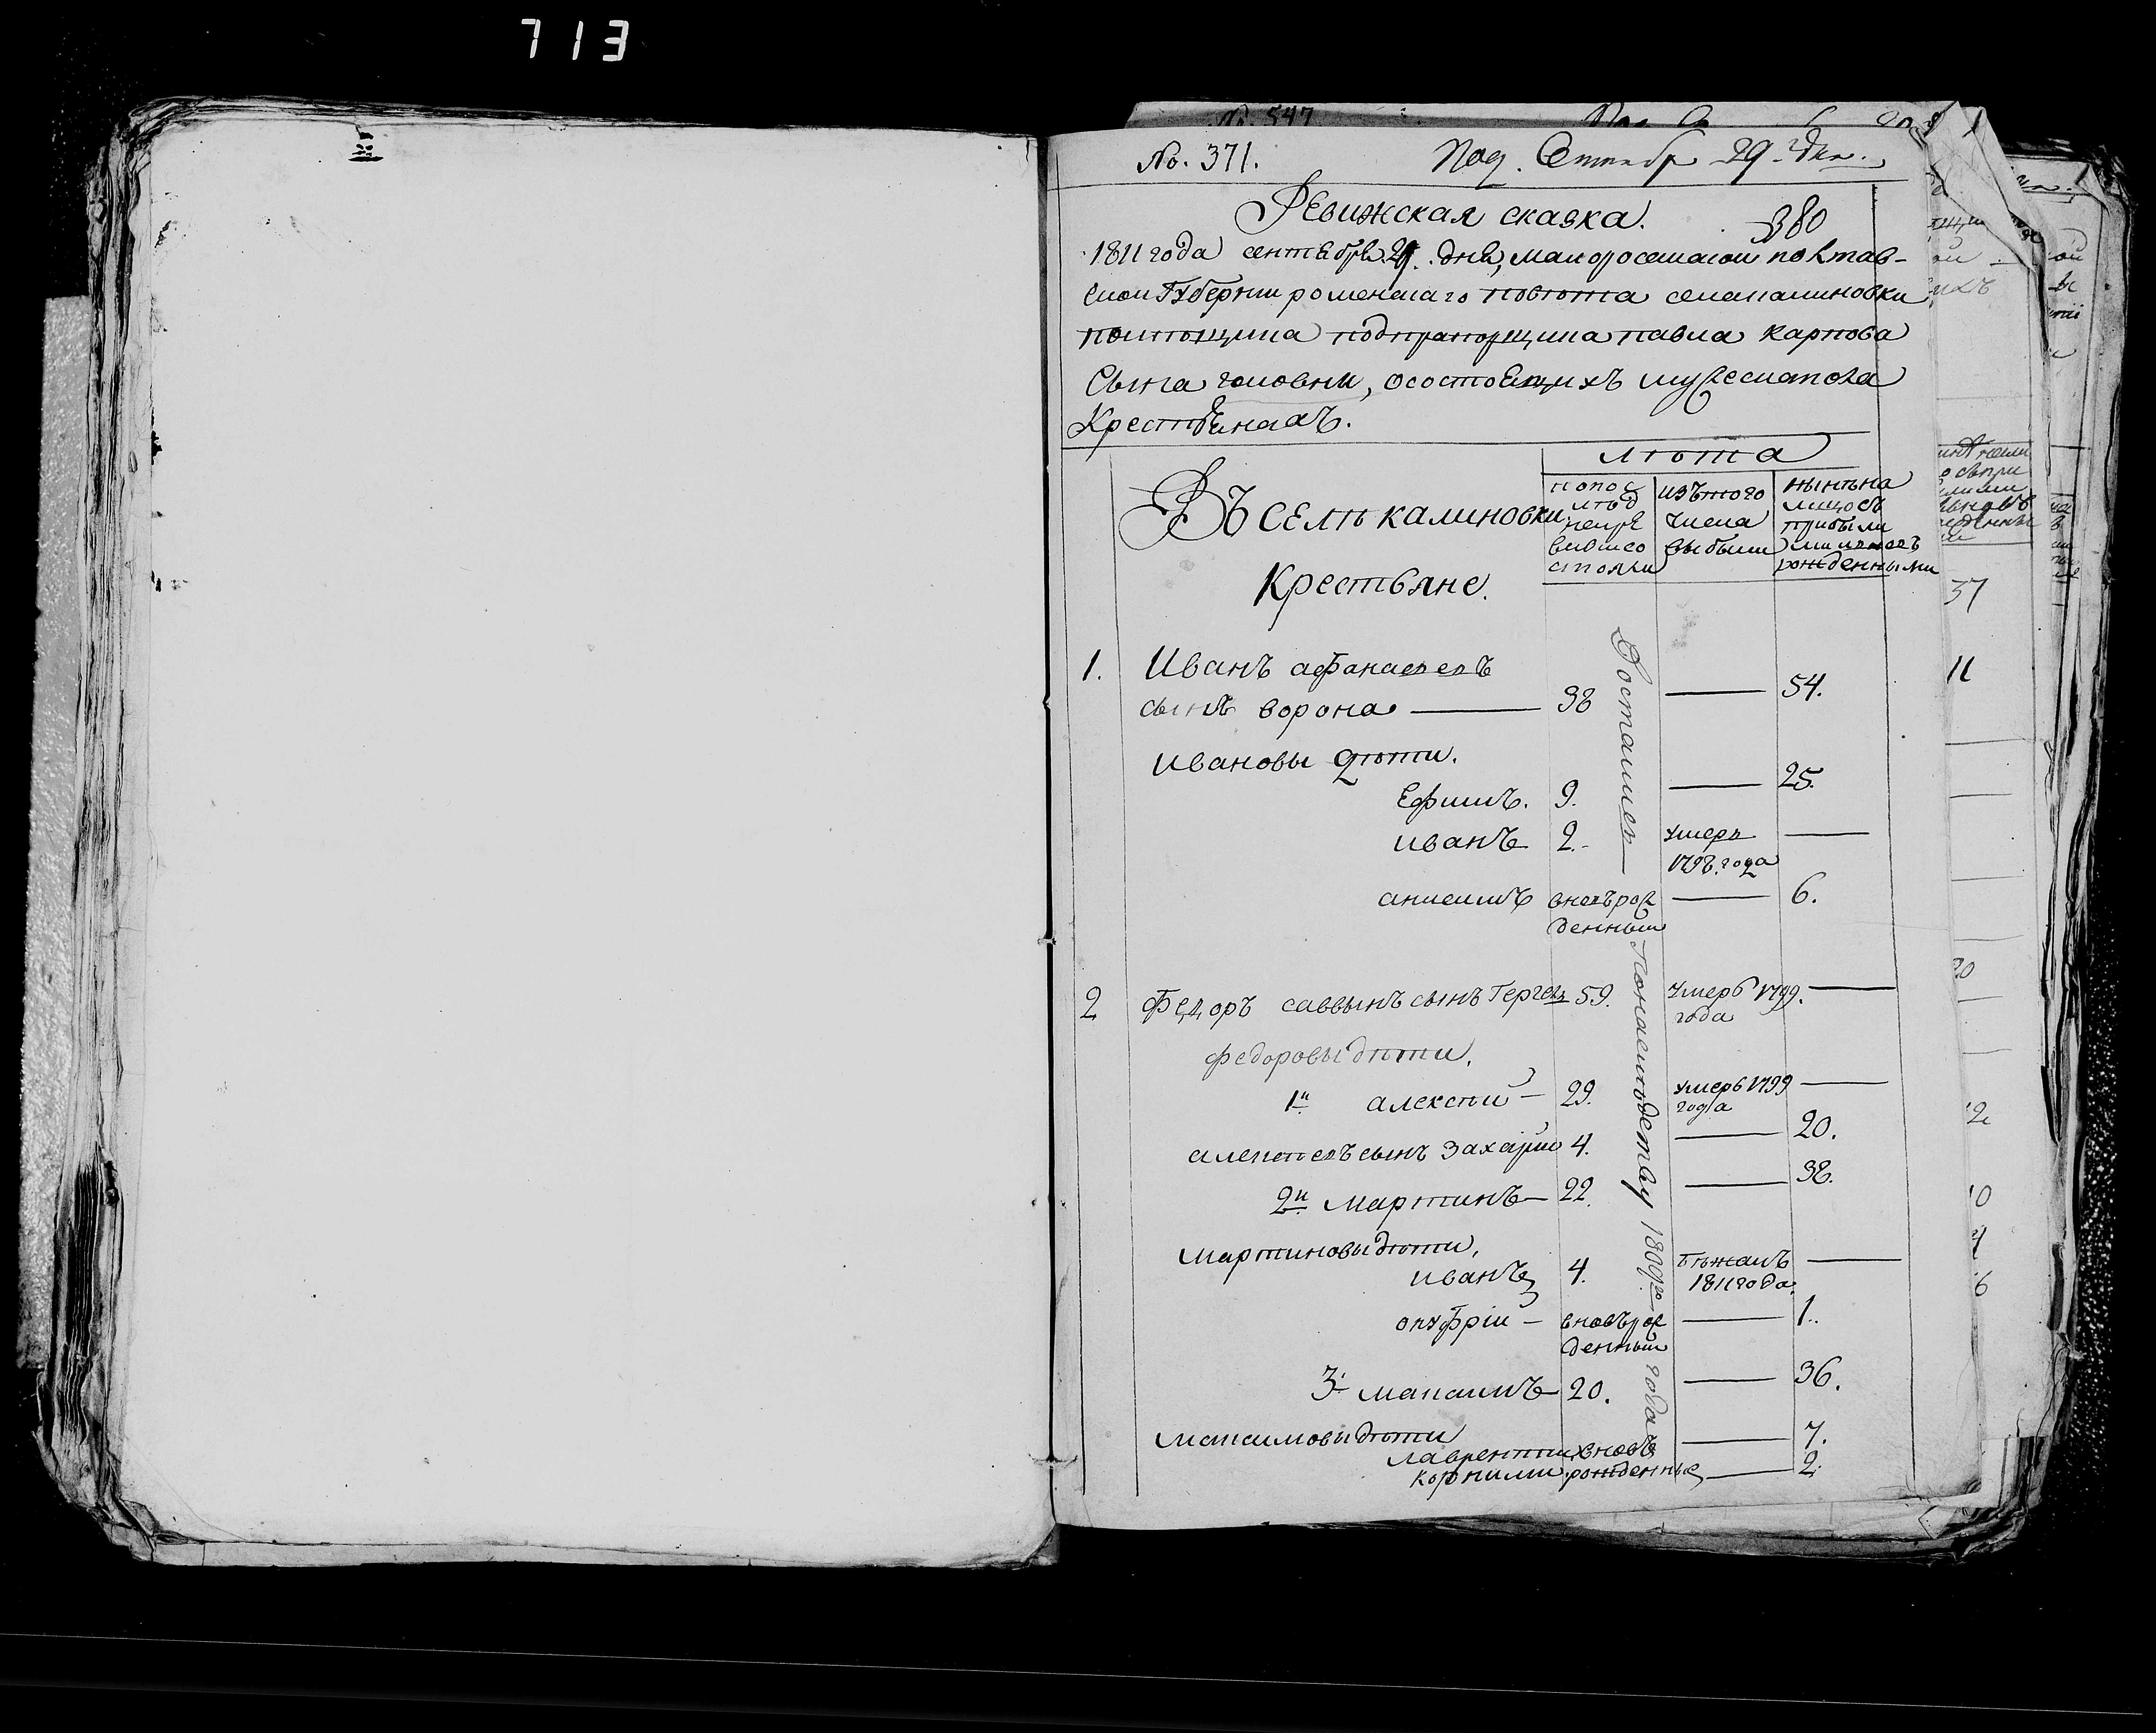 713
No. 371.
Под. Сентябр 29 дня.
Ревижская сказка.
380
1811 года сентября 29. дня, малоросеискои полтав-
скои Губернии роменскаго повѣта села калиновки
помѣщика подпрапорщика павла карпова
Сына головни, осостоящихъ мужеска пола
Крестьянахъ.
лѣта
Въ селѣ калиновки
Крестьяне.
попос
лѣд
неи ре
визи со
стояли
изътого
числа
выбыли
нынѣ на
лицо съ
прибыли
ми и вновь
рожденными
1. Иванъ афанасевъ
сынъ ворона 38 54.
ивановы дѣти.
Ефимъ. 9. 25.
иванъ 2. умеръ
1798. года
анисимъ вновърож 6.
денныи
2 Федоръ саввынъ сынъ Гергель 59. Умеръ 1799.
года
федоровы дѣти.
1й алексѣй 29. умеръ 1799
года
алексѣевъ сынъ Захарій 4. 20.
2й мартинъ 22. 38.
мартиновы дѣти,
иванъ 4. бѣжалъ
1811 года.
онуфрій вновърож 1.
денныи
3й максимъ 20. 36.
максимовы дѣти
лаврентии вновь 7.
корнилии рожденные 2.
Досталися понаслѣдству 1809го года
37
11
20
12
10
6